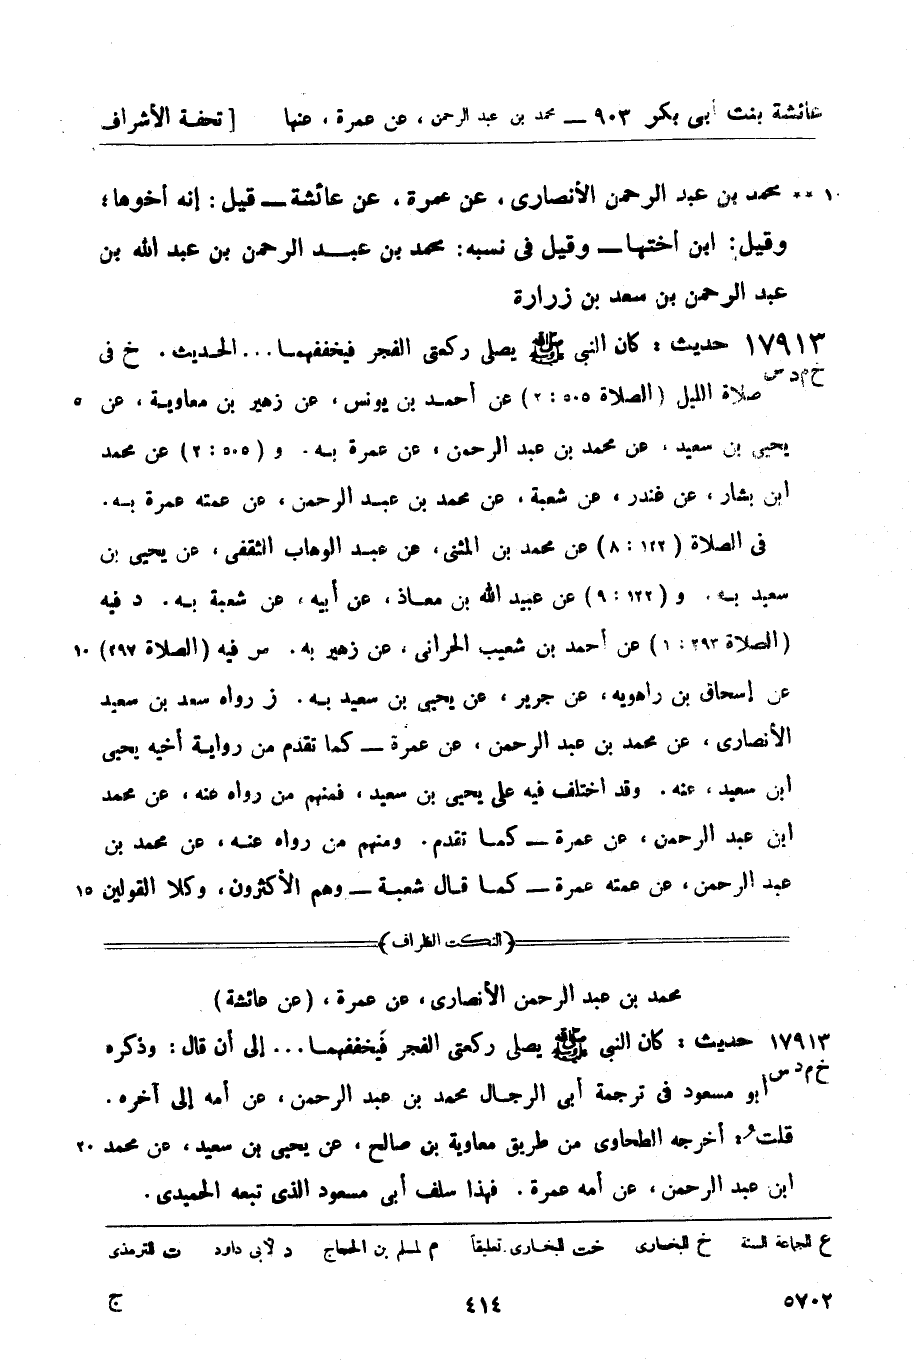 عائشة بنت أبى بكر ٩٠٣ — محمد بن عبد الرحمن ، عن عمرة ، عنها [ تحفة الأشراف
١٠ ** محمد بن عبد الرحمن الأنصارى، عن عمرة، عن عائشة — قيل : إنه أخوها؛
وقيل: ابن أختها — وقيل فى نسبه: محمد بن عبد الرحمن بن عبد الله بن
عبد الرحمن بن سعد بن زرارة
١٧٩١٣ حديث : كان النبى ﷺ يصلى ركعتى الفجر فيخففهما ... الحديث . خ فى
خ م د س صلاة الليل (الصلاة ٥٠٥ : ٢) عن أحمد بن يونس، عن زهير بن معاوية، عن ٥
يحيى بن سعيد، عن محمد بن عبد الرحمن، عن عمرة به. و (٥٠٥ : ٢) عن محمد
ابن بشار، عن غندر، عن شعبة، عن محمد بن عبد الرحمن، عن عمته عمرة به.
فى الصلاة (١٢٢ : ٨) عن محمد بن المثنى، عن عبد الوهاب الثقفى، عن يحيى بن
سعيد به. و (١٢٢ : ٩) عن عبيد الله بن معاذ، عن أبيه، عن شعبة به. د فيه
(الصلاة ٢٩٣ : ١) عن أحمد بن شعيب الحرانى، عن زهير به. س فيه (الصلاة ٢٩٧) ١٠
عن إسحاق بن راهويه، عن جرير، عن يحيى بن سعيد به. ز رواه سعد بن سعيد
الأنصارى، عن محمد بن عبد الرحمن، عن عمرة — كما تقدم من رواية أخيه يحيى
ابن سعيد، عنه. وقد اختلف فيه على يحيى بن سعيد، فمنهم من رواه عنه، عن محمد
ابن عبد الرحمن، عن عمرة — كما تقدم. ومنهم من رواه عنه، عن محمد بن
عبد الرحمن، عن عمته عمرة — كما قال شعبة — وهم الأكثرون، وكلا القولين ١٥
(النكت الظراف)
محمد بن عبد الرحمن الأنصارى، عن عمرة، (عن عائشة)
١٧٩١٣ حديث : كان النبى ﷺ يصلى ركعتى الفجر فيخففهما ... إلى أن قال : وذكره
خ م د س أبو مسعود فى ترجمة أبى الرجال محمد بن عبد الرحمن، عن أمه إلى آخره.
قلت: أخرجه الطحاوى من طريق معاوية بن صالح، عن يحيى بن سعيد، عن محمد ٢٠
ابن عبد الرحمن، عن أمه عمرة. فهذا سلف أبى مسعود الذى تبعه الحميدى.
ع الجماعة الستة خ البخارى خت البخارى تعليقاً م لمسلم بن الحجاج د لأبى داود ت للترمذى
٥٧٠٢ ٤١٤ ج